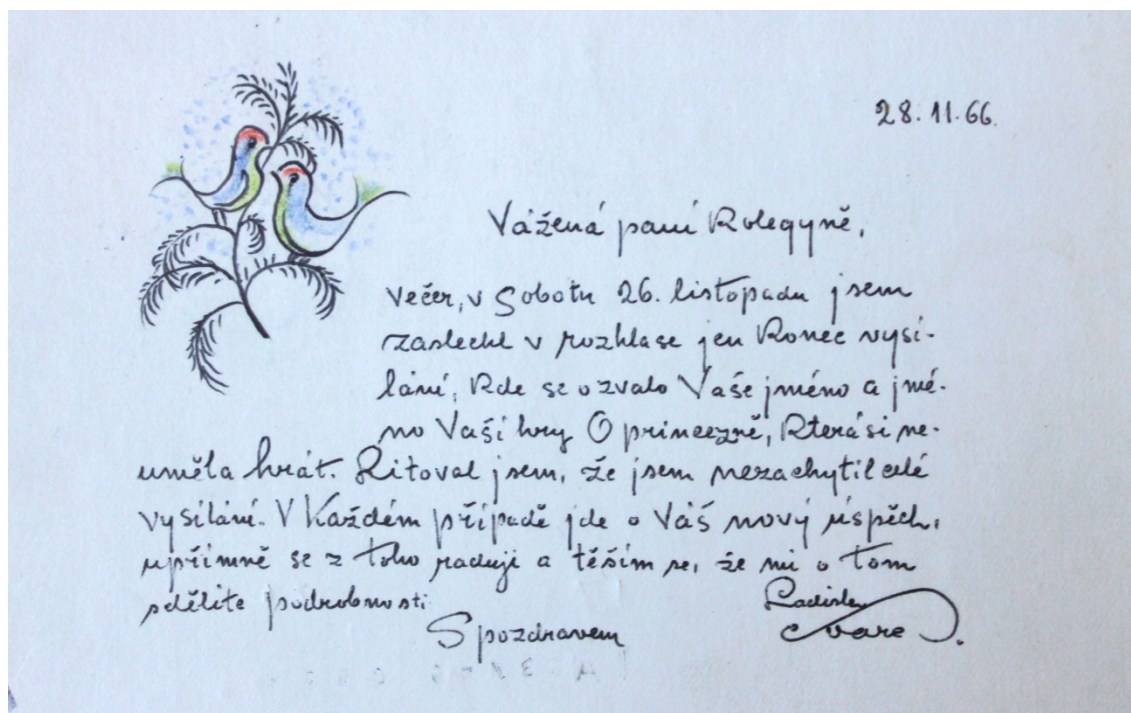 28.11.66.
Vážená paní Kolegyně,
večer, v Sobotu 26. listopadu jsem
zaslechl v rozhlase jen Konec vysí-
lání, Kde se ozvalo Vaše jméno a jmé-
no Vaší hry O princezně, Která si ne-
uměla hrát. Litoval jsem, že jsem nezachytil celé
vysílání. V Každém případě jde o Váš nový úspěch,
upřímně se z toho raduji a těším se, že mi o tom
sdělíte podrobnosti
S pozdravem